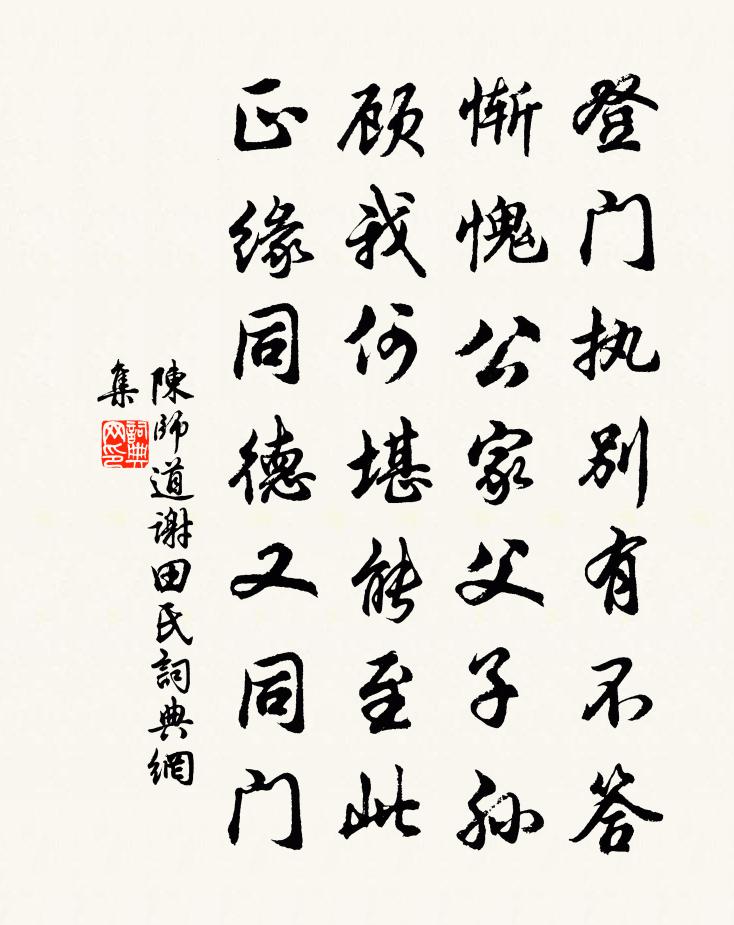 登门执别有不答
惭愧公家父子孙
顾我何堪能至此
正缘同德又同门
陳師道謝田氏詞典網
集
詞典
网印